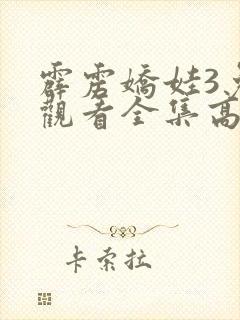 霹雳嬌娃3免
觀看全集高
卡索拉